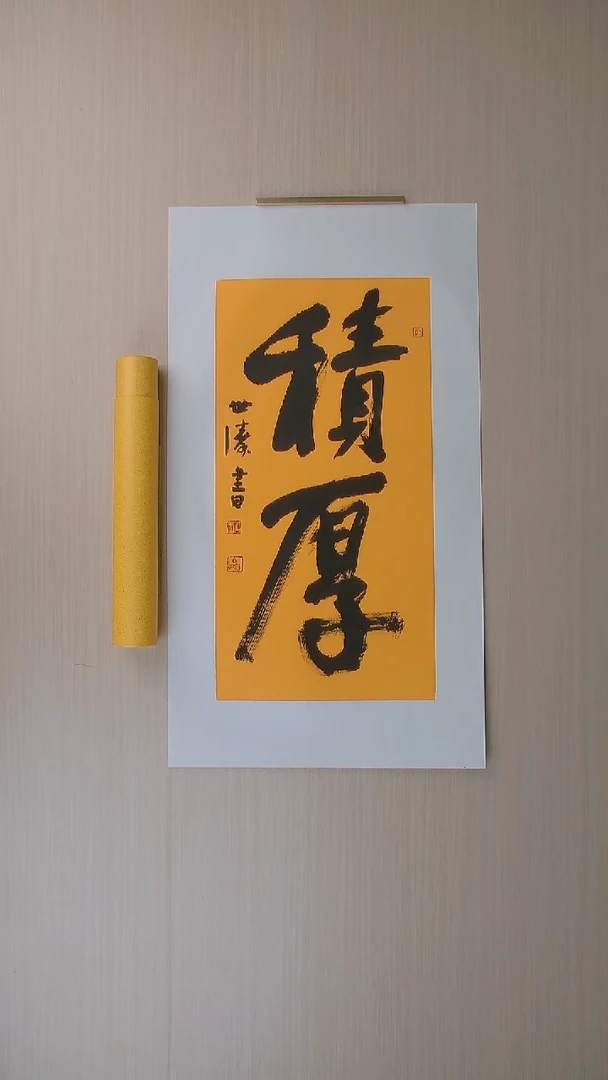 積厚
世濤書